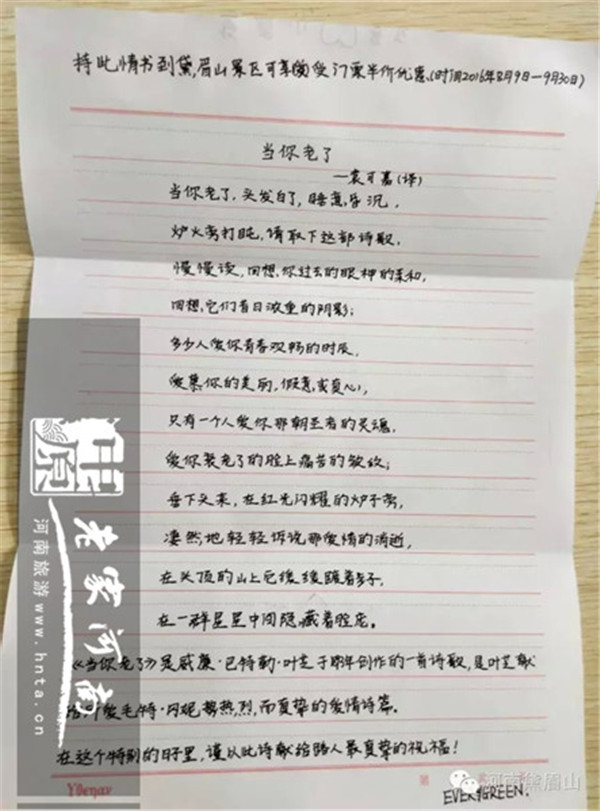 持此情书到黛眉山景区可享受门票半价优惠(时间2016年8月9日—9月30日)
当你老了
—袁可嘉(译)
当你老了,头发白了,睡意昏沉,
炉火旁打盹,请取下这部诗歌,
慢慢读,回想你过去的眼神的柔和,
回想它们昔日浓重的阴影;
多少人爱你青春欢畅的时辰,
爱慕你的美丽,假意或真心,
只有一个人爱你那朝圣者的灵魂,
爱你衰老了的脸上痛苦的皱纹;
垂下头来,在红光闪耀的炉子旁,
凄然地轻轻诉说那爱情的消逝,
在头顶的山上它缓缓踱着步子,
在一群星星中间隐藏着脸庞。
《当你老了》是威廉·巴特勒·叶芝于 创作的一首诗歌,是叶芝献
给 毛特·冈妮 热烈,而真挚的爱情诗篇。
在这个特别的日子里,谨以此诗献给路人最真挚的祝福!
Yibenxuv
EVERGREEN.
中原
老家河南
河南旅游 www.hnta.cn
河南黛眉山